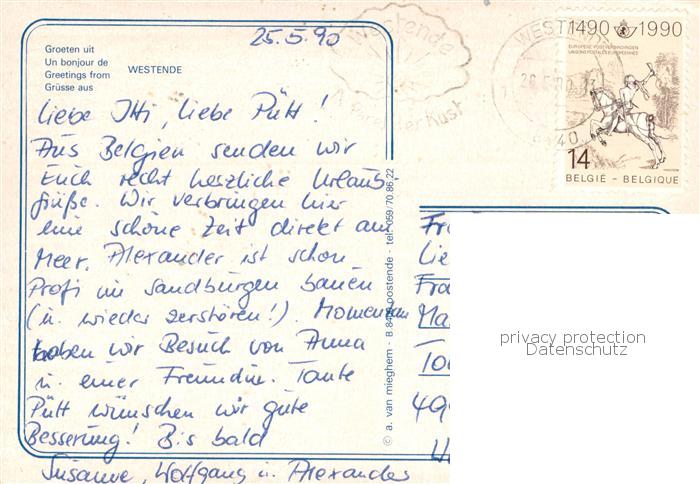 25.5.90
Groeten uit
Un bonjour de
Greetings from
Grüsse aus
WESTENDE
Liebe Itti, liebe Pütt!
Aus Belgien senden wir
Euch recht herzliche Urlaubs-
grüße. Wir verbringen hier
eine schöne Zeit direkt am
Meer. Alexander ist schon
Profi im Sandburgen bauen
(u. wieder zerstören!). Momentan
haben wir Besuch von Anna
u. einer Freundin. Tante
Pütt wünschen wir gute
Besserung! Bis bald
Susanne, Wolfgang u. Alexander
© a. van mieghem - B 8400 oostende - tel. 059/70.86.22
Westende
Kust
WEST
1490 1990
EUROPESE POSTVERBINDINGEN
LIAISONS POSTALES EUROPEENNES
14
BELGIË - BELGIQUE
Fr
Lie
Fra
Ma
To
privacy protection
Datenschutz